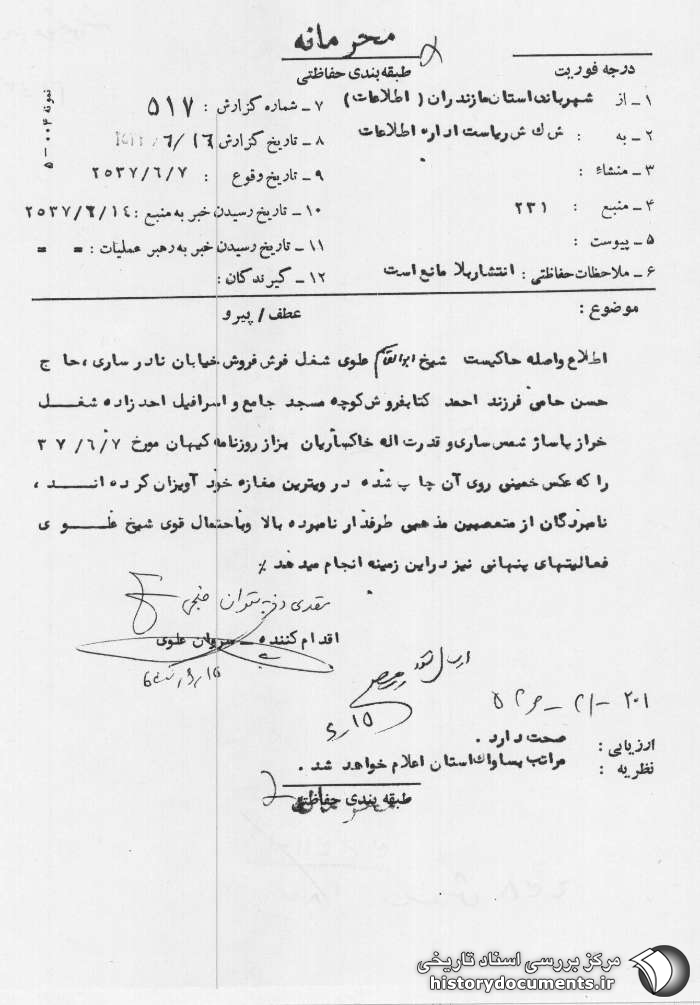 محرمانه
طبقه بندی حفاظتی
درجه فوریت
نمونه ۰۰۴ – ۵
۱ ـ از شهربانی استان مازندران ( اطلاعات )
۷ ـ شماره گزارش : ۵۱۷
۲ ـ به : ش ك ش ریاست اداره اطلاعات
۸ ـ تاریخ گزارش ۶/۱۶/
۳ ـ منشاء :
۹ ـ تاریخ وقوع : ۲۵۳۷/۶/۷
۴ ـ منبع : ۲۳۱
۱۰ ـ تاریخ رسیدن خبر به منبع : ۲۵۳۷/۶/۱٤
۵ ـ پیوست :
۱۱ ـ تاریخ رسیدن خبر به رهبر عملیات : = =
۶ ـ ملاحظات حفاظتی : انتشار بلا مانع است
۱۲ ـ گیرندگان :
موضوع :
عطف / پیرو
اطلاع واصله حاکیست شیخ ابوالقاسم علوی شغل فرش فروش خیابان نادر ساری ، حاج
حسن حامی فرزند احمد کتابفروش کوچه مسجد جامع و اسرافیل احد زاده شغل
خراز پاساژ شمس ساری و قدرت اله خاکساریان بزاز روزنامه کیهان مورخ ۳۷/۶/۷
را که عکس خمینی روی آن چاپ شده در ویترین مغازه خود آویزان کرده اند ،
نامبردگان از متعصبین مذهبی طرفدار نامبرده بالا وباحتمال قوی شیخ علوی
فعالیتهای پنهانی نیز دراین زمینه انجام میدهد ٪
اقدام کننده ـ سروان علوی
ارسال شود
۱۵ ر ۶
۲۰۱
ارزیابی : صحت دارد .
نظریه : مراتب بساواك استان اعلام خواهد شد .
طبقه بندی حفاظتی
مرکز بررسی اسناد تاریخی
historydocuments.ir